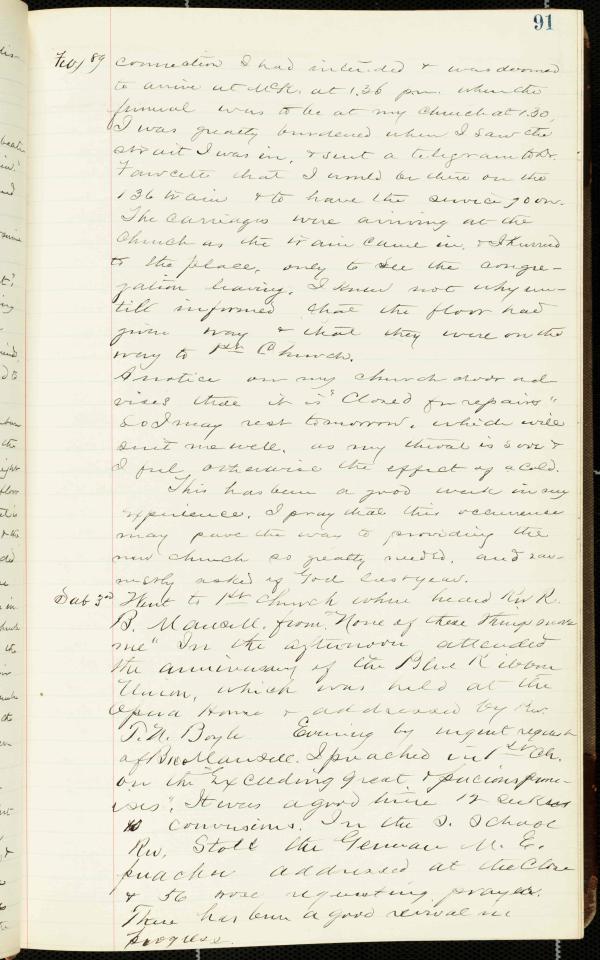 91
Feb/89 connection I had intended & was doomed
to arive at McK. at 1.36 pm. when the
funeral was to be at my church at 1.30,
I was greatly burdened when I saw the
strait I was in, & sent a telegram to Dr.
Fawcette that I would be there on the
1 36 train & to have the service go on.
The carriages were arriving at the
Church as the train came in, & I hurried
to the place, only to see the congre-
gation leaving. I knew not why un-
till informed that the floor had
given way & that they were on the
way to 1st Church.
A notice on my church door ad
vises that it is "Closed for repairs"
So I may rest tomorrow, which will
suit me well, as my throat is sore &
I feel otherwise the effect of a cold.
This has been a good week in my
experience. I pray that this occurrence
may pave the way to providing the
new church so greatly needed, and ear-
nestly asked of God last year.
Sab 3rd Went to 1st Church where heard Rev R.
B. Mansell. from "None of these things move
me" In the afternoon attended
the anniversary of the Blue Ribbon
Union, which was held at the
Opera House & addressed by Rev.
T. N. Boyle Evening by urgent request
of Bro Mansell. I preached in 1st Ch.
on the "Exceeding great & precious prom-
ises". It was a good time 12 seekers
conversions. In the S. School
Rev, Stoll the German M. E.
preacher addressed at the close
& 56 rose requesting prayer.
There has been a good revival in
progress.